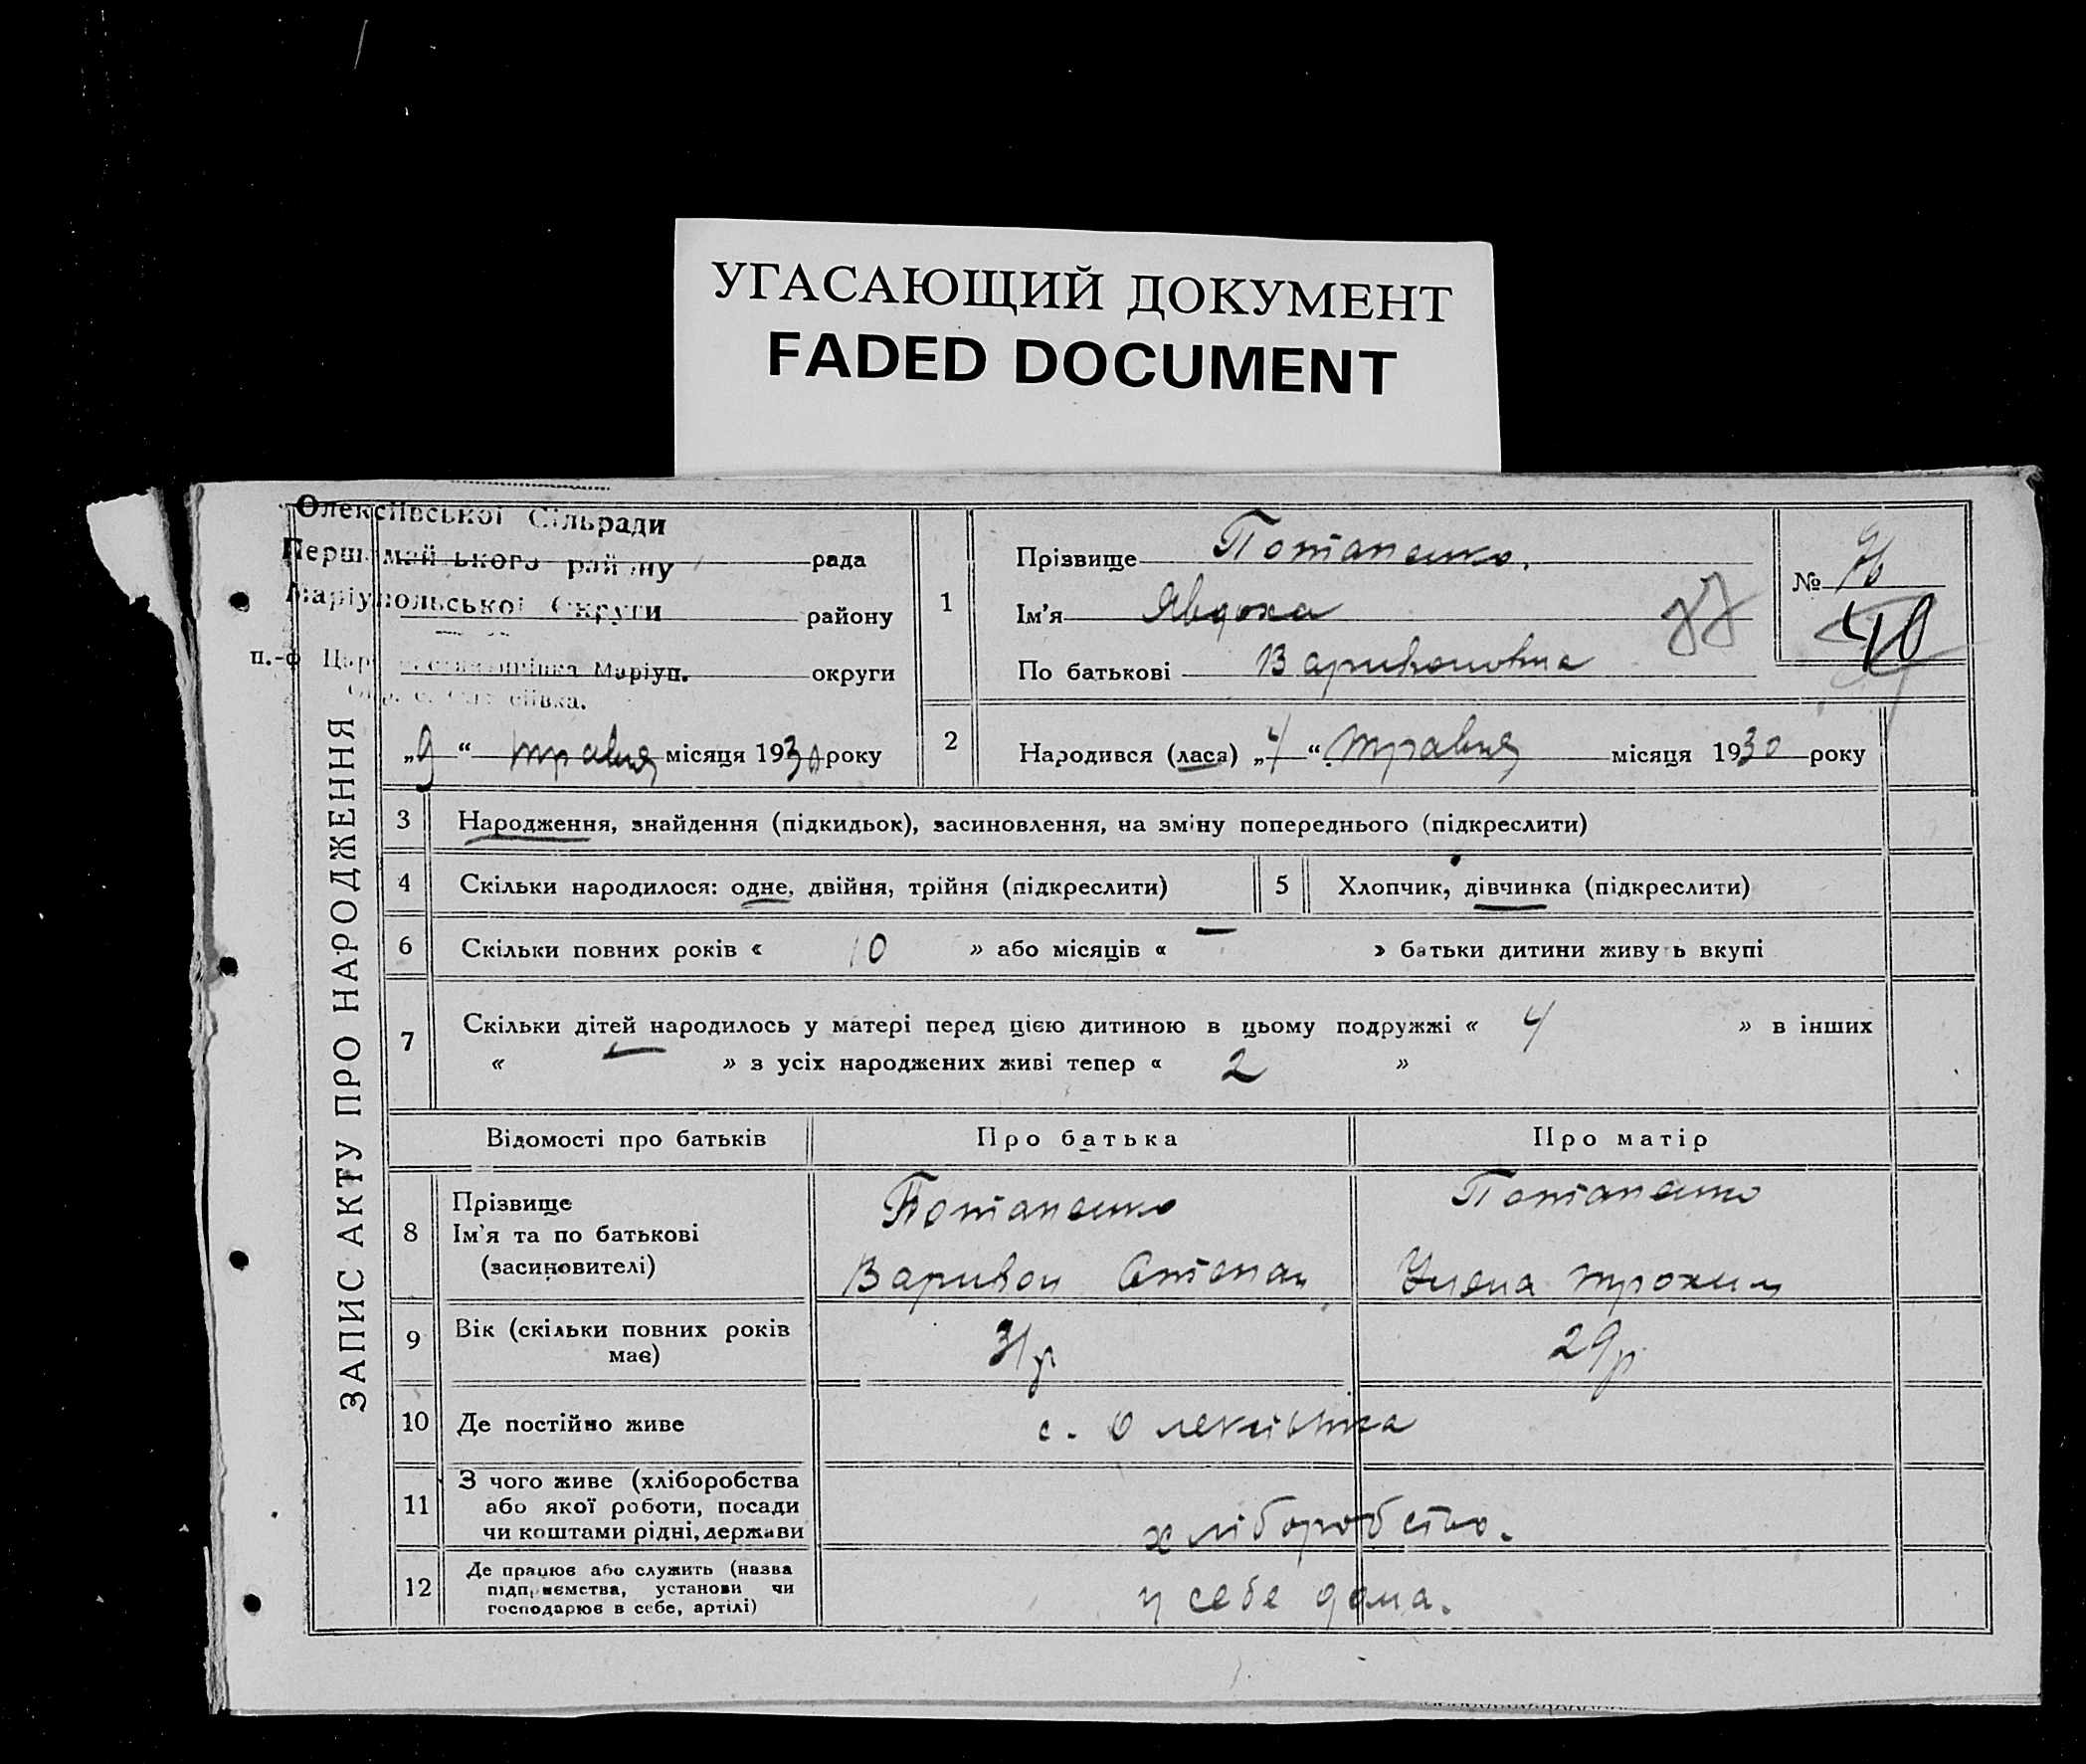 УГАСАЮЩИЙ ДОКУМЕНТ
FADED DOCUMENT
Олексіївської Сільради
рада
Маріупольської Округи
району
Маріуп.
округи
„9“ травня місяця 1930 року
ЗАПИС АКТУ ПРО НАРОДЖЕННЯ
1
Прізвище Потапенко.
Ім'я Явдоха
По батькові Варивоновна
№
40
2 Народився (лася) „4“ травня місяця 1930 року
3 Народження, знайдення (підкидьок), засиновлення, на зміну попереднього (підкреслити)
4 Скільки народилося: одне, двійня, трійня (підкреслити)
5 Хлопчик, дівчинка (підкреслити)
6 Скільки повних років « 10 » або місяців « — » батьки дитини живуть вкупі
7 Скільки дітей народилось у матері перед цією дитиною в цьому подружжі « 4 » в інших
« — » з усіх народжених живі тепер « 2 »
Відомості про батьків Про батька Про матір
8 Прізвище Потапенко Потапенко
Ім'я та по батькові
(засиновителі) Варивон Степан Трохим
9 Вік (скільки повних років 31 р 29 р
має)
10 Де постійно живе с. Олексіївка
11 З чого живе (хліборобства
або якої роботи, посади
чи коштами рідні, держави хліборобство.
12 Де працює або служить (назва
підприємства, установи чи
господарює в себе, артілі) у себе дома.